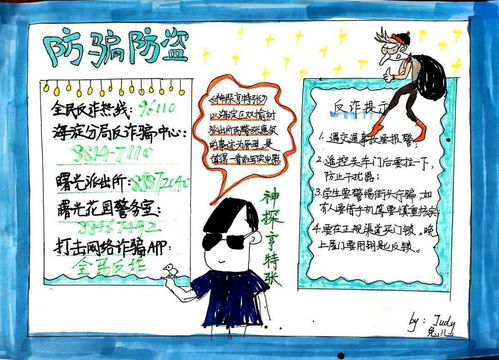 防骗防盗
全民反诈热线：96110
海淀分局反诈骗中心：
曙光派出所：
曙光花园警务室：
打击网络诈骗APP：
全民反诈
《神探亨特张》
以海淀区双榆树
派出所民警张惠领
值得一看的
神探亨特张
反诈提示
1.遇交通事故要报警；
2.遥控关车门后要拉一下，
防止干扰器；
3.学生要警惕街头诈骗，如
有人要借手机等要慎重
4.要在正规渠道买门锁。晚
上屋门要用钥匙反锁。
by: Judy